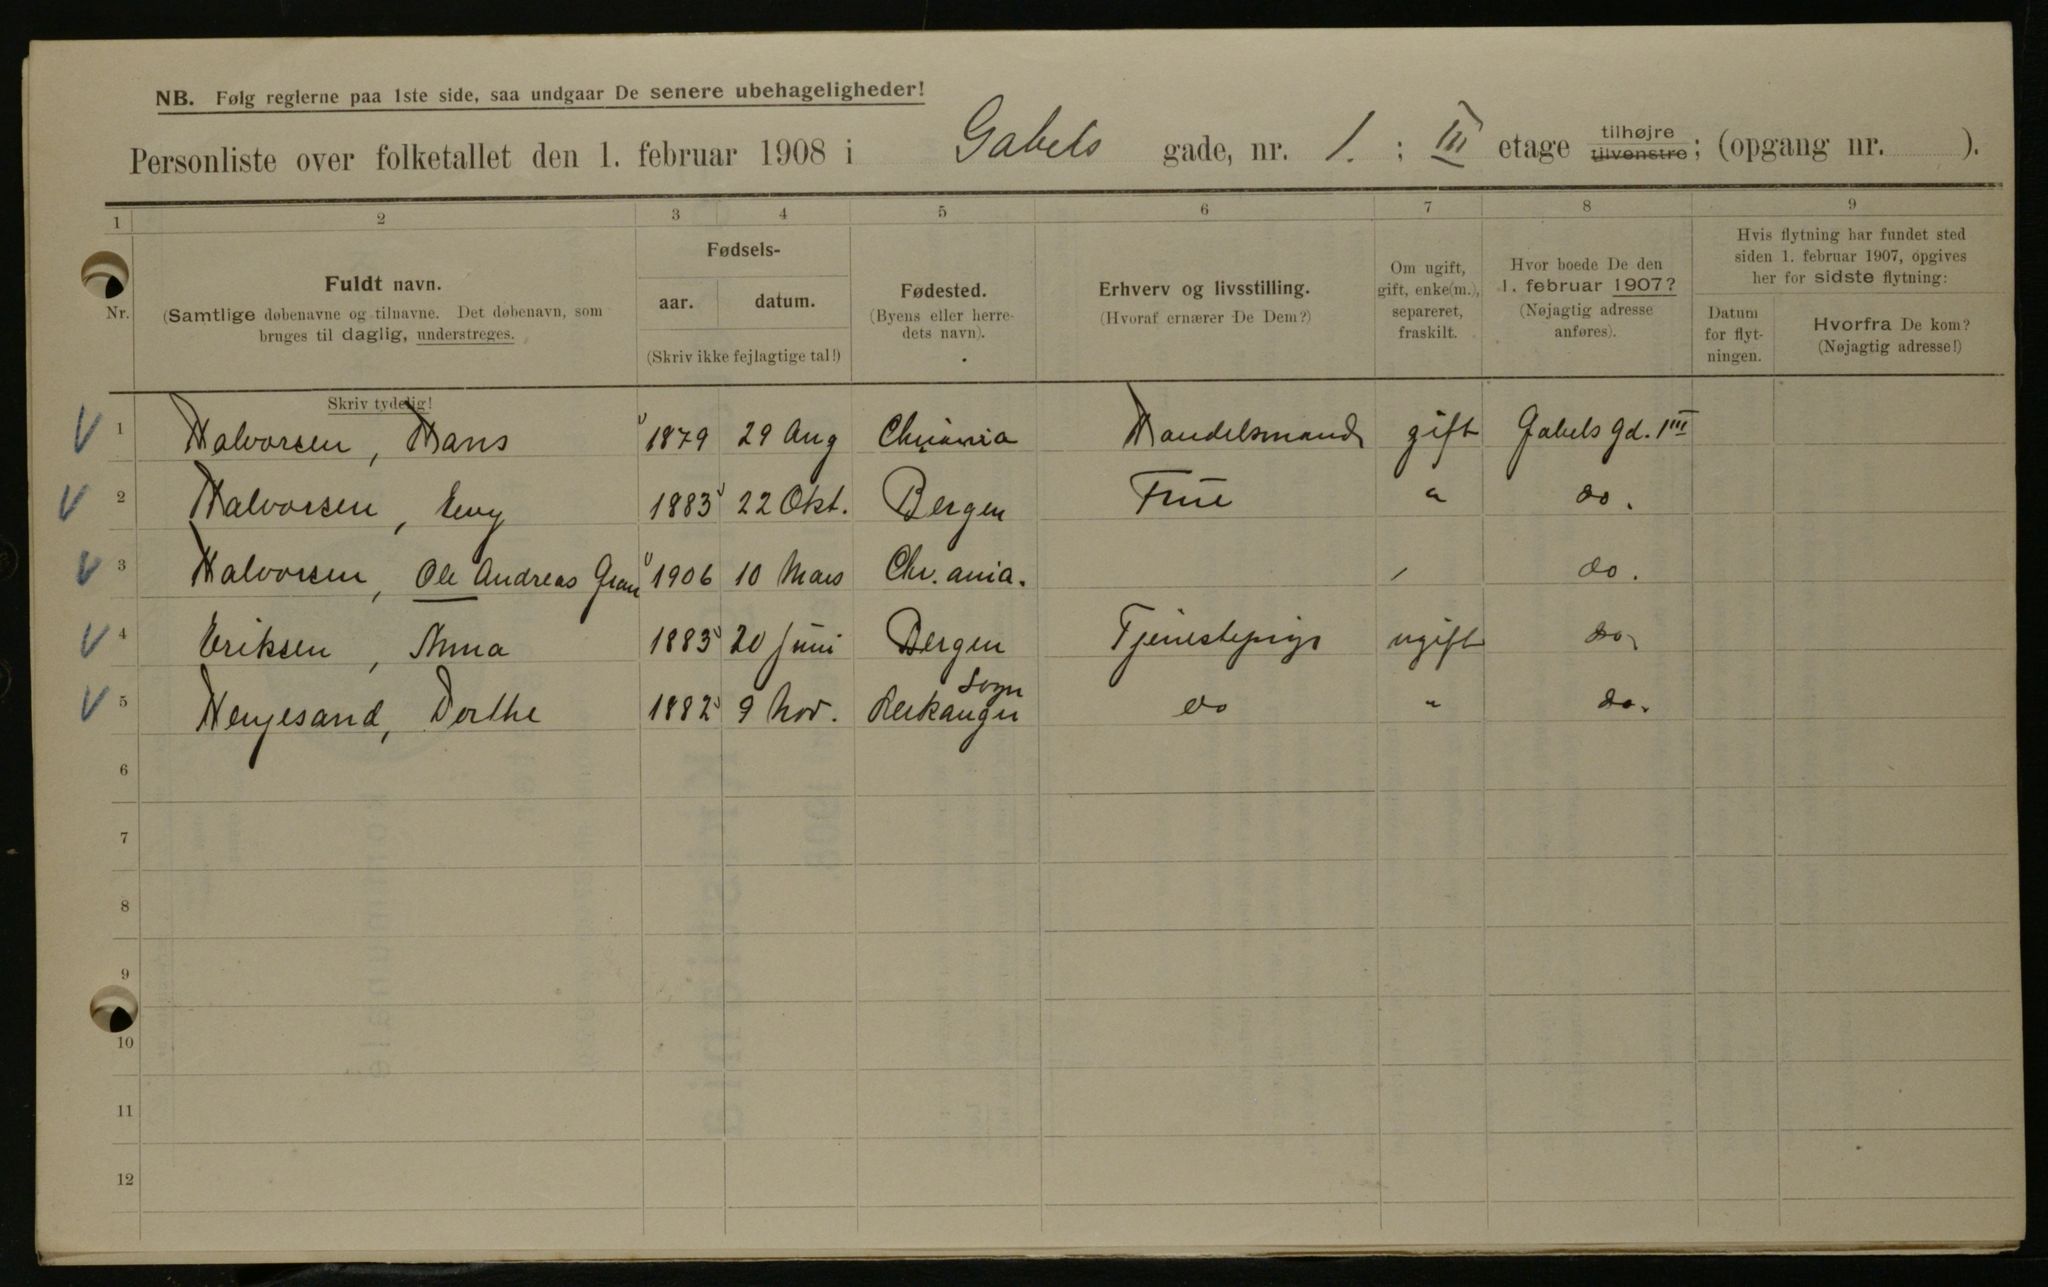 NB. Følg reglerne paa 1ste side, saa undgaar De senere ubehageligheder!
Personliste over folketallet den 1. februar 1908 i Gabels gade, nr. 1. ; III etage tilhøjre tilvenstre; (opgang nr. ).
1 2 3 4 5 6 7 8 9
Nr.
Fuldt navn.
(Samtlige døbenavne og tilnavne. Det døbenavn, som
bruges til daglig, understreges.
Fødsels-
aar. datum.
(Skriv ikke fejlagtige tal!)
Fødested.
(Byens eller herre-
dets navn).
Erhverv og livsstilling.
(Hvoraf ernærer De Dem?)
Om ugift,
gift, enke(m.),
separeret,
fraskilt.
Hvor boede De den
1. februar 1907?
(Nøjagtig adresse
anføres).
Hvis flytning har fundet sted
siden 1. februar 1907, opgives
her for sidste flytning:
Datum
for flyt-
ningen.
Hvorfra De kom?
(Nøjagtig adresse!)
Skriv tydelig!
1 Halvorsen, Hans 1879 29 Aug Chr.ania Handelsmand gift Gabels gd. 1 III
2 Halvorsen, 1883 22 Okt. Bergen Frue " do.
3 Halvorsen, Ole Andreas Gran 1906 10 Mars Chr.ania. / do.
4 Eriksen, Anna 1883 20 Juni Bergen Tjenestepige ugift do
Sogn
5 Dorthe 1882 9 Nov. do " do.
6
7
8
9
10
11
12